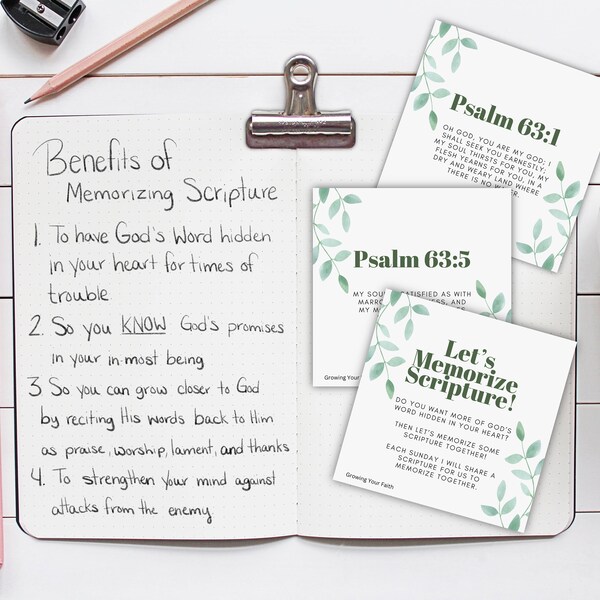 Benefits of
Memorizing Scripture
1. To have God's Word hidden
in your heart for times of
trouble
2. So you KNOW God's promises
in your in-most being
3 So you can grow closer to God
by reciting His words back to Him
as praise, worship, lament, and thanks
4. To strengthen your mind against
attacks from the enemy.
Psalm 63:1
OH GOD, YOU ARE MY GOD; I
SHALL SEEK YOU EARNESTLY;
MY SOUL THIRSTS FOR YOU, MY
FLESH YEARNS FOR YOU, IN A
DRY AND WEARY LAND WHERE
THERE IS NO WATER.
Psalm 63:5
MY SOUL SATISFIED AS WITH
AND
Growing Your
Let's
Memorize
Scripture!
DO YOU WANT MORE OF GOD'S
WORD HIDDEN IN YOUR HEART?
THEN LET'S MEMORIZE SOME
SCRIPTURE TOGETHER!
EACH SUNDAY I WILL SHARE A
SCRIPTURE FOR US TO
MEMORIZE TOGETHER.
Growing Your Faith